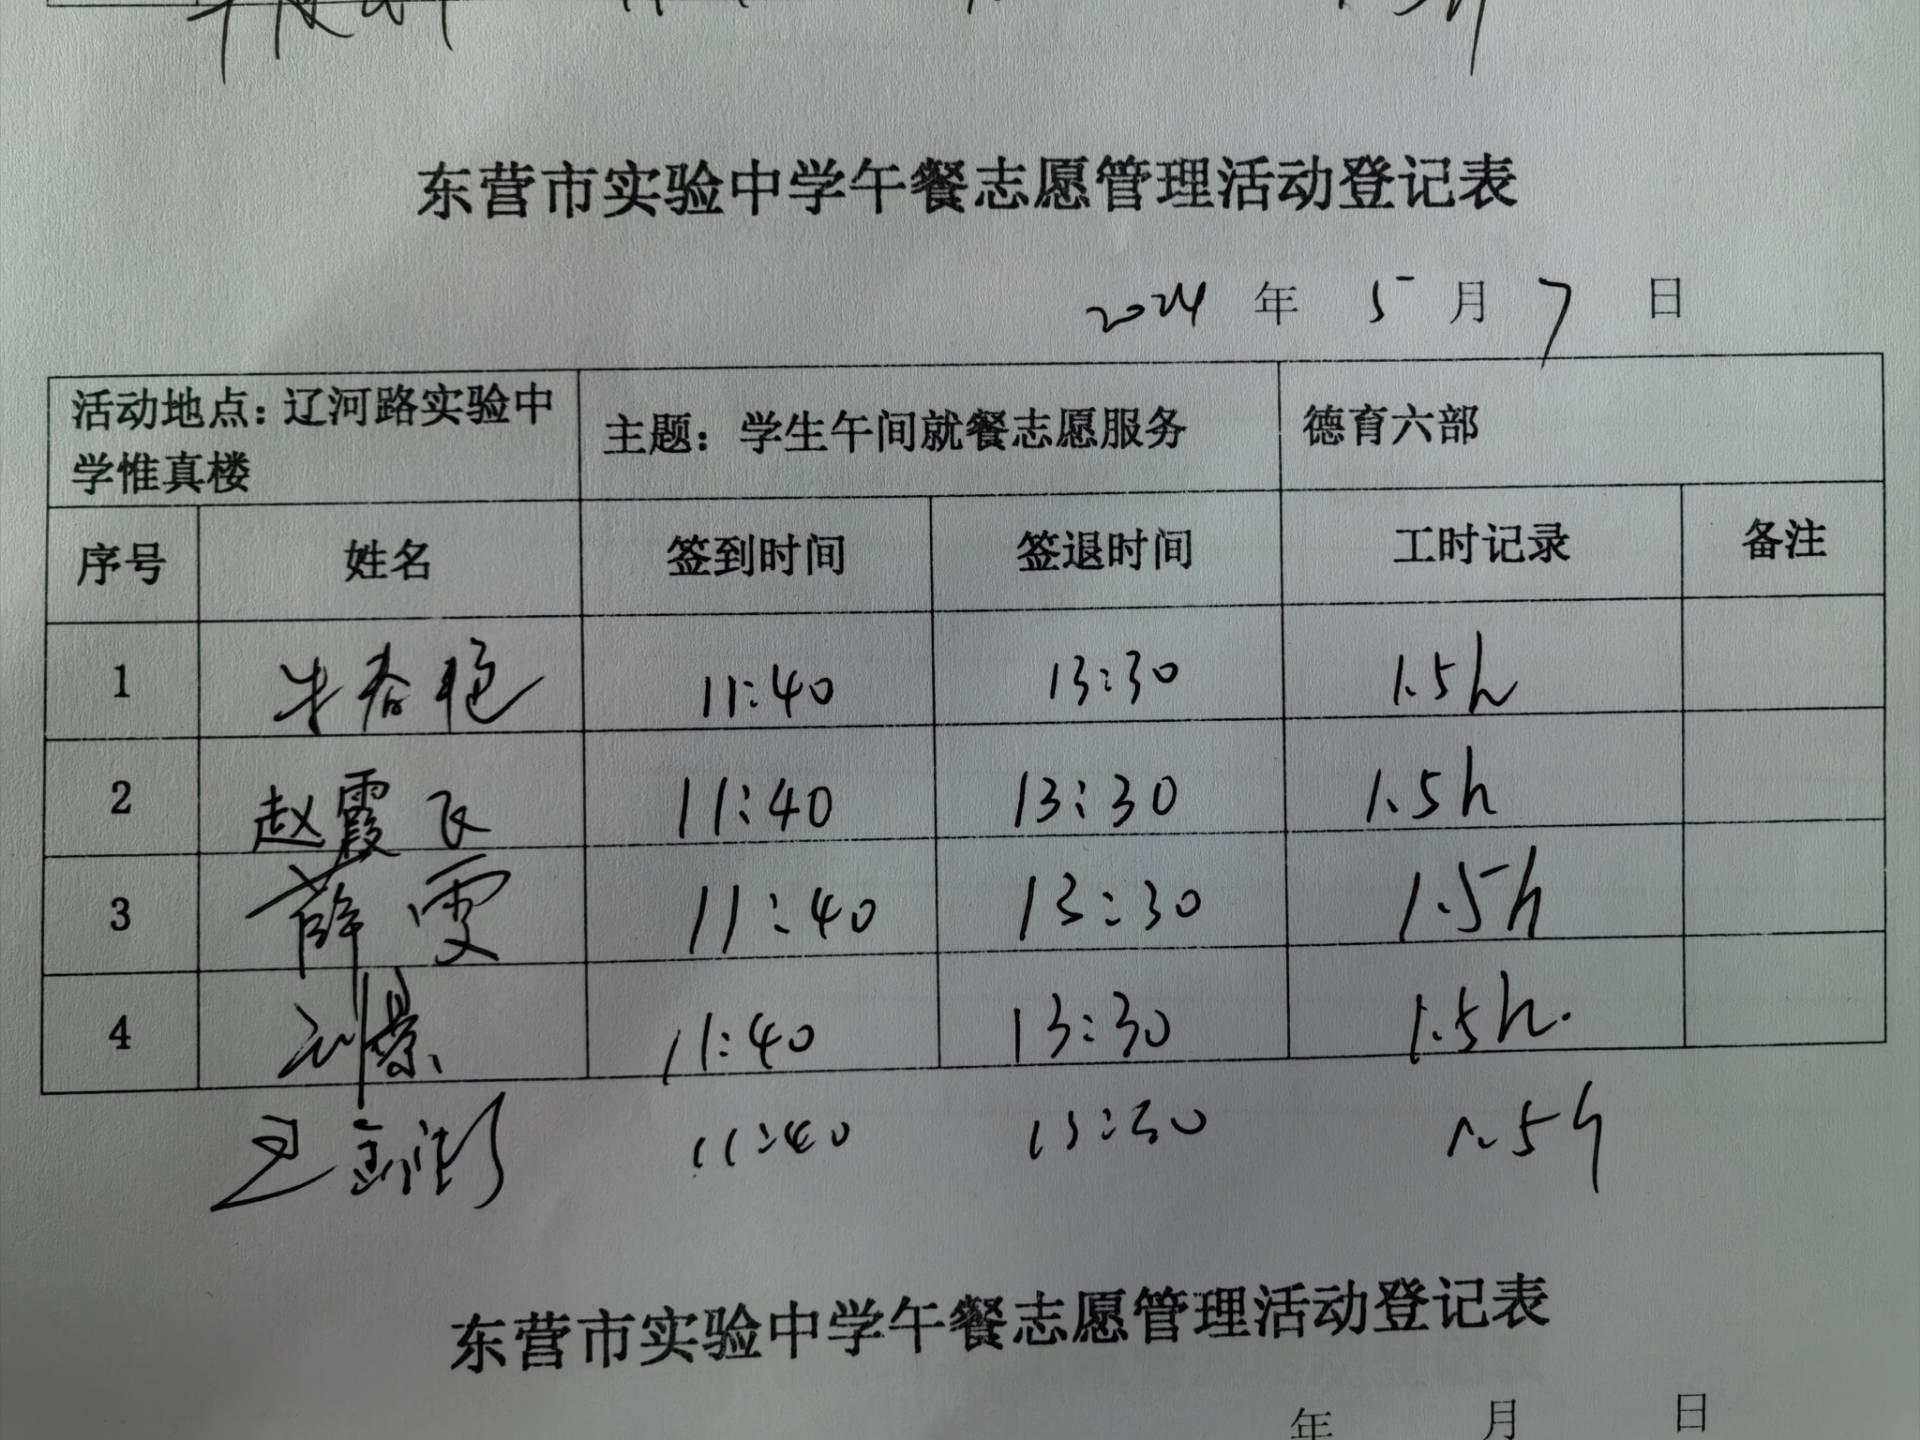 东营市实验中学午餐志愿管理活动登记表
2024 年 5 月 7 日
活动地点：辽河路实验中学惟真楼 主题：学生午间就餐志愿服务 德育六部
序号 姓名 签到时间 签退时间 工时记录 备注
1 牛春艳 11:40 13:30 1.5h
2 赵霞飞 11:40 13:30 1.5h
3 薛雯 11:40 13:30 1.5h
4 刘景 11:40 13:30 1.5h.
王 11:40 13:30 1.5h
东营市实验中学午餐志愿管理活动登记表
年 月 日